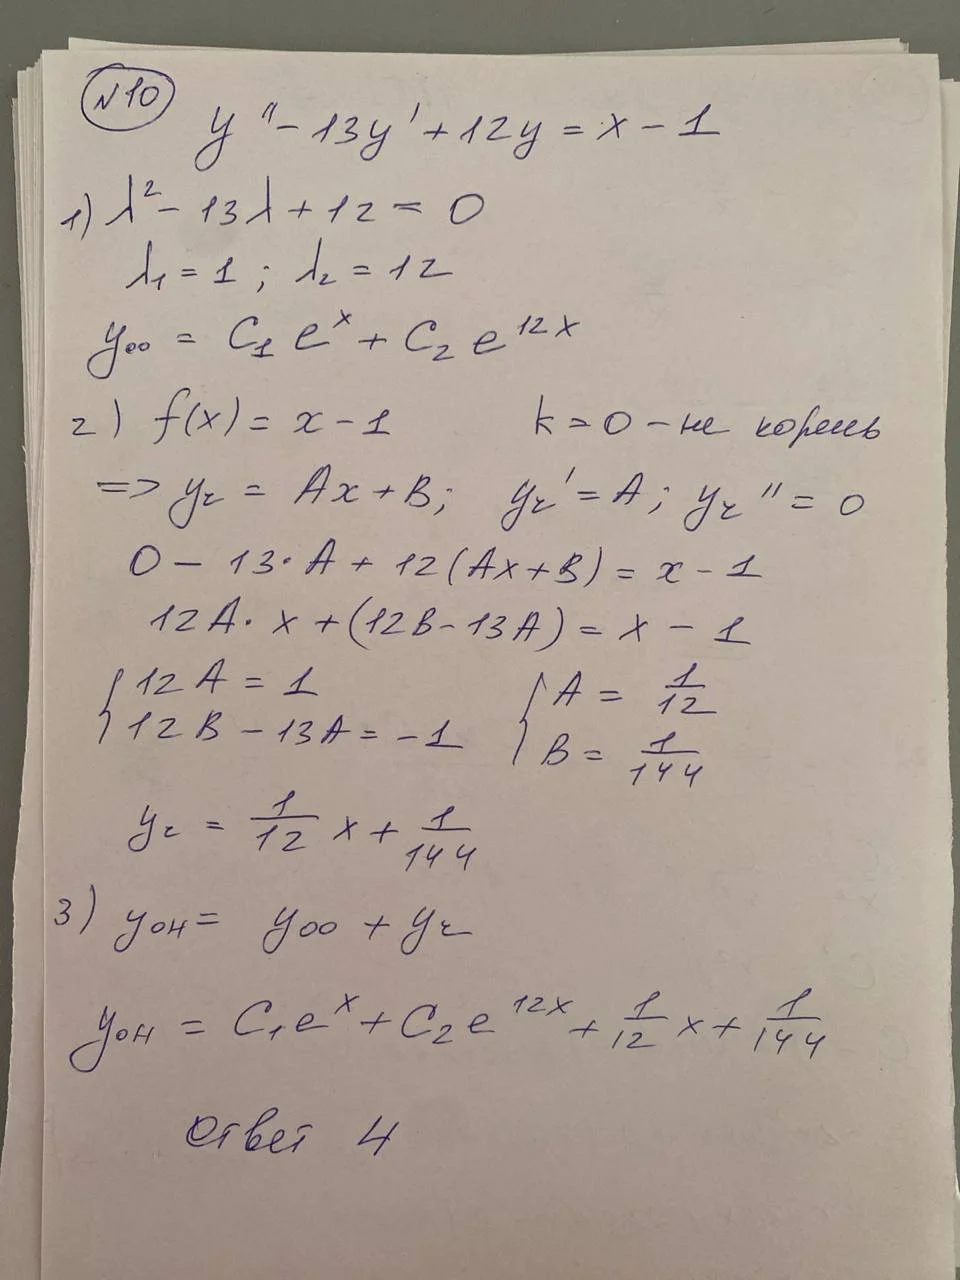 №10
y'' - 13y' + 12y = x - 1
1) λ² - 13λ + 12 = 0
λ₁ = 1 ; λ₂ = 12
y₀₀ = C₁ eˣ + C₂ e¹²ˣ
2) f(x) = x - 1 k = 0 - не корень
=> yч = Ax + B; yч' = A; yч'' = 0
0 - 13·A + 12(Ax + B) = x - 1
12A·x + (12B - 13A) = x - 1
{ 12A = 1 { A = 1/12
12B - 13A = -1 B = 1/144
yч = 1/12 x + 1/144
3) yон = yоо + yч
yон = C₁eˣ + C₂e¹²ˣ + 1/12 x + 1/144
Ответ 4